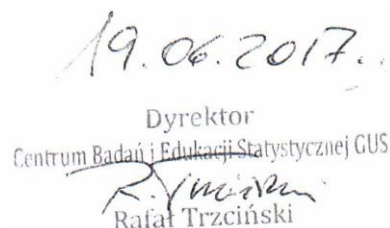 19.06.2017.
Dyrektor
Centrum Badań i Edukacji Statystycznej GUS
Rafał Trzciński